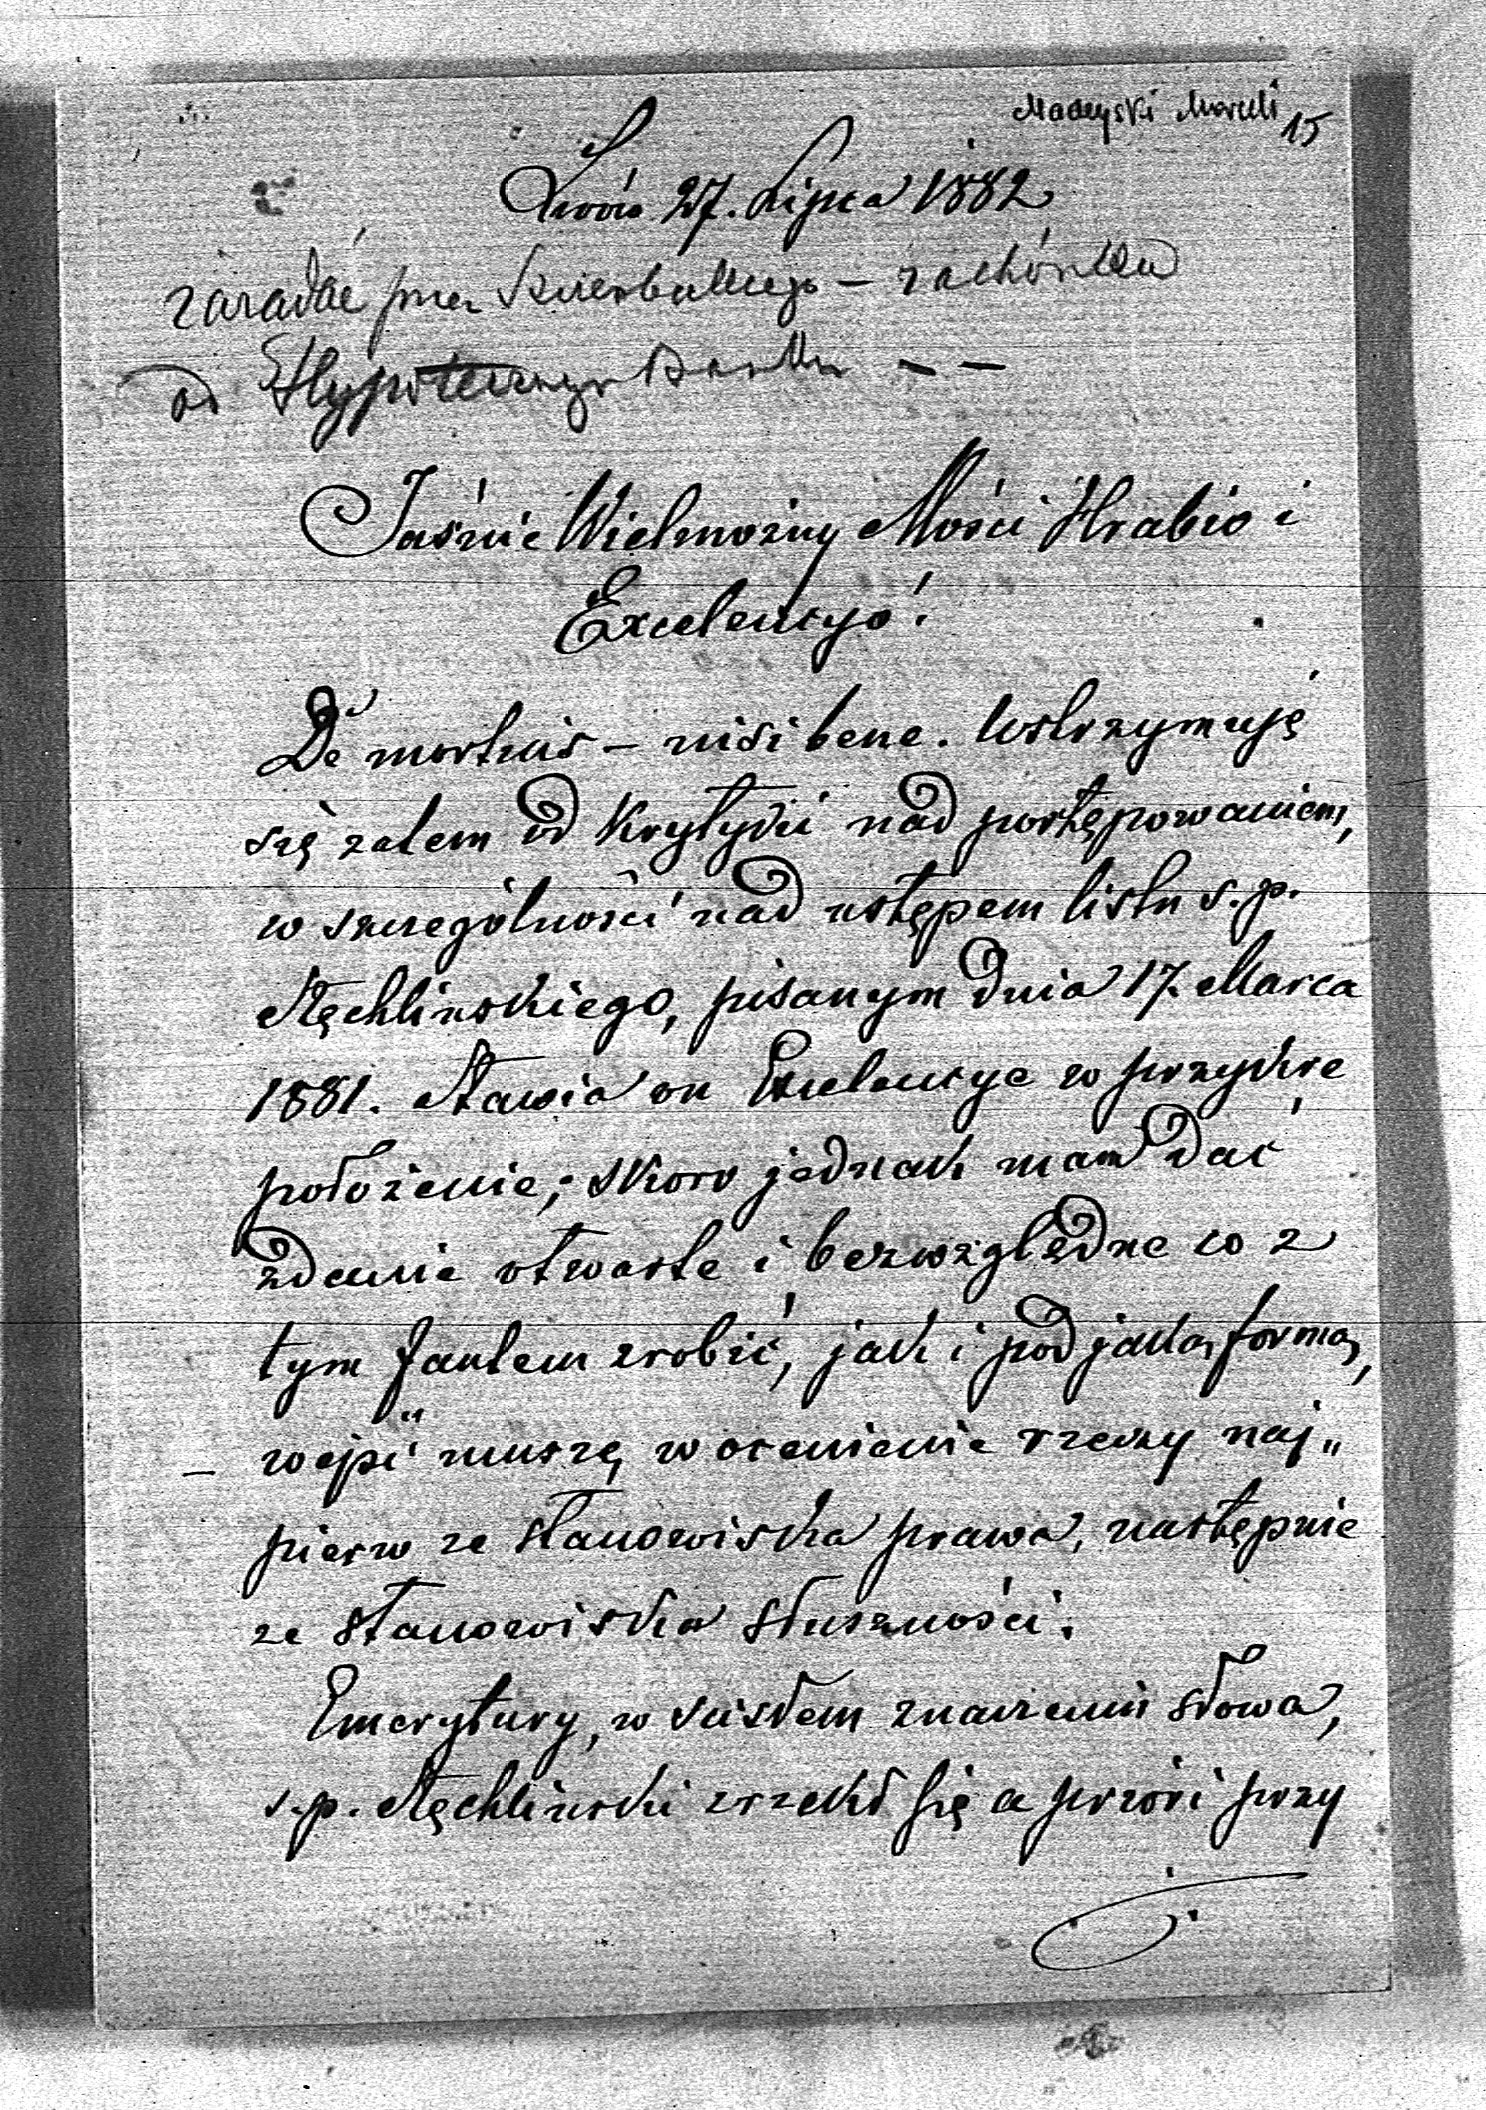 Madeyski Marceli 15
Lwów 27. Lipca 1882
zaradać przez
od Hypotecznego Banku — —
Jaśnie Wielmożny Mości Hrabio i
Excelencyo!
De mortuis – nisi bene. Wstrzymuję
się zatem od Krytyki nad postępowaniem,
w szczególności nad ustępem listu s. p.
Stęchlinskiego, pisanym dnia 17. Marca
1881. Stawia on Excelencye w przykre
położenie; skoro jednak mam dać
zdanie otwarte i bezwzględne co z
tym fantem zrobić, jak i pod jaką formą,
– wejść muszę w ocenienie rzeczy naj„
pierw ze stanowiska prawa, następnie
ze stanowiska słuszności.
Emerytury, w scisłem znaczeniu słowa,
s. p. Stęchliński zrzekł się a priori przy